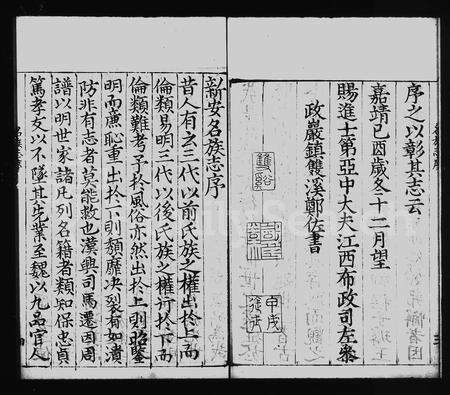 序之以彰其志云
嘉靖己酉歲冬十二月望
賜進士第亞中大夫江西布政司左叅
政巖鎮雙溪鄭佐書
雙溪
甲戌
進士
新安名族志序
昔人有云三代以前氏族之權出於上而
倫類易明三代以後氏族之權行於下而
倫類難考予於風俗亦然出於上則昭鑒
明而廉恥重出於下則頽靡決裂有如潰
防非有志者莫能救也漢興司馬遷因周
譜以明世家諸凡列名籍者類知保忠貞
篤孝友以不隊其先業至魏以九品官人